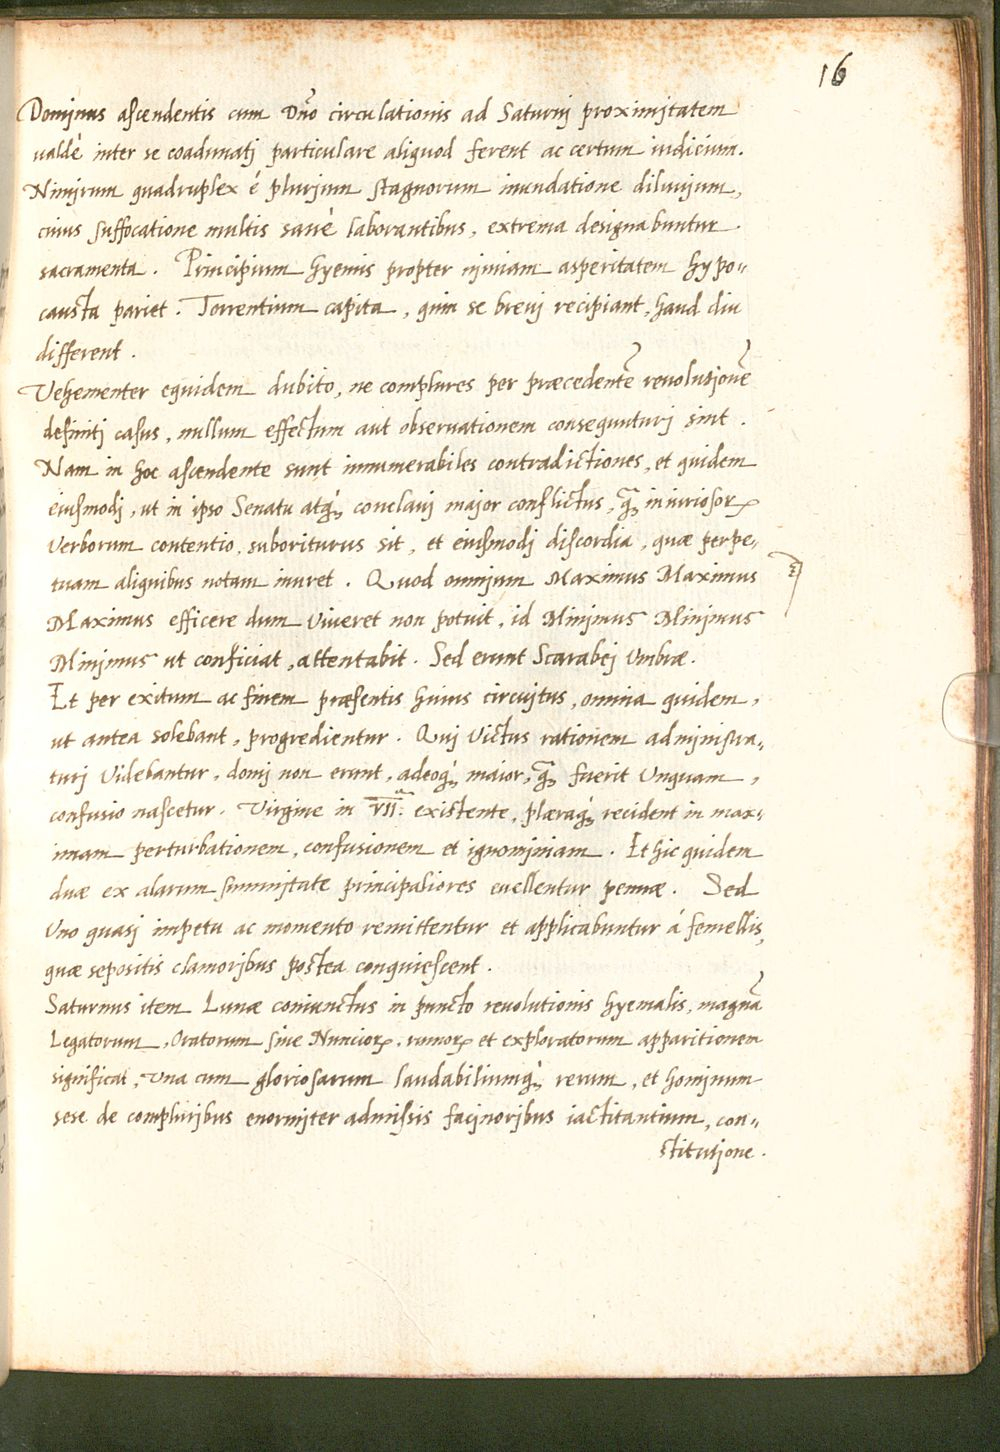 16
Dominus ascendentis cum Dño circulationis ad Saturnj proximitatem
ualdè inter se coadunatj particulare aliquod ferent ac certum indicium.
Nimirum quadruplex è plurium stagnorum inundatione diluuium,
cuius suffocatione multis sanè laborantibus, extrema designabuntur
sacramenta. Principium hyemis propter nimiam asperitatem hypo„
causta pariet. Torrentium capita, quin se breuj recipiant, haud diu
different.
Vehementer equidem dubito, ne complures per præcedentẽ reuolutionẽ
definiti casus, nullum effectum aut obseruationem consequuturj sint.
Nam in hoc ascendente sunt innumerabiles contradictiones, et quidem
eiusmodj, ut in ipso Senatu atq́ꝫ conclauj major conflictus, q̃ꝫ iniuriosorꝝ
Verborum contentio, suboriturus sit, et eiusmodj discordia, quæ perpe„
tuam aliquibus notam inuret. Quod omnium Maximus Maximus
Maximus efficere dum Viueret non potuit, id Minimus Minimus
Minimus ut conficiat, attentabit. Sed erunt Scarabej Vmbræ.
Et per exitum ac finem præsentis huius circuitus, omnia quidem,
ut antea solebant, progredientur. Quj Victus rationem administra„
turj Videbantur, domj non erunt, adeoq́ꝫ maior, q̃ꝫ fuerit Vnquam,
confusio nascetur. Virgine in VII.ª existente, plæraq́ꝫ recident in max„
imam perturbationem, confusionem et ignominiam. Et hic quidem
duæ ex alarum summitate principaliores euellentur pennæ. Sed
Vno quasj impetu ac momento remittentur et applicabuntur á femellis,
quæ sepositis clamoribus postea conquiescent.
Saturnus item Lunæ coniunctus in puncto reuolutionis hyemalis, magnã
Legatorum, Oratorum siue Nunciorꝝ, rumorꝝ et exploratorum apparitionem
significat, Vna cum gloriosarum laudabiliumq́ꝫ rerum, et hominum
sese de compluribus enormiter admissis facinoribus iactitantium, con„
stitutione.